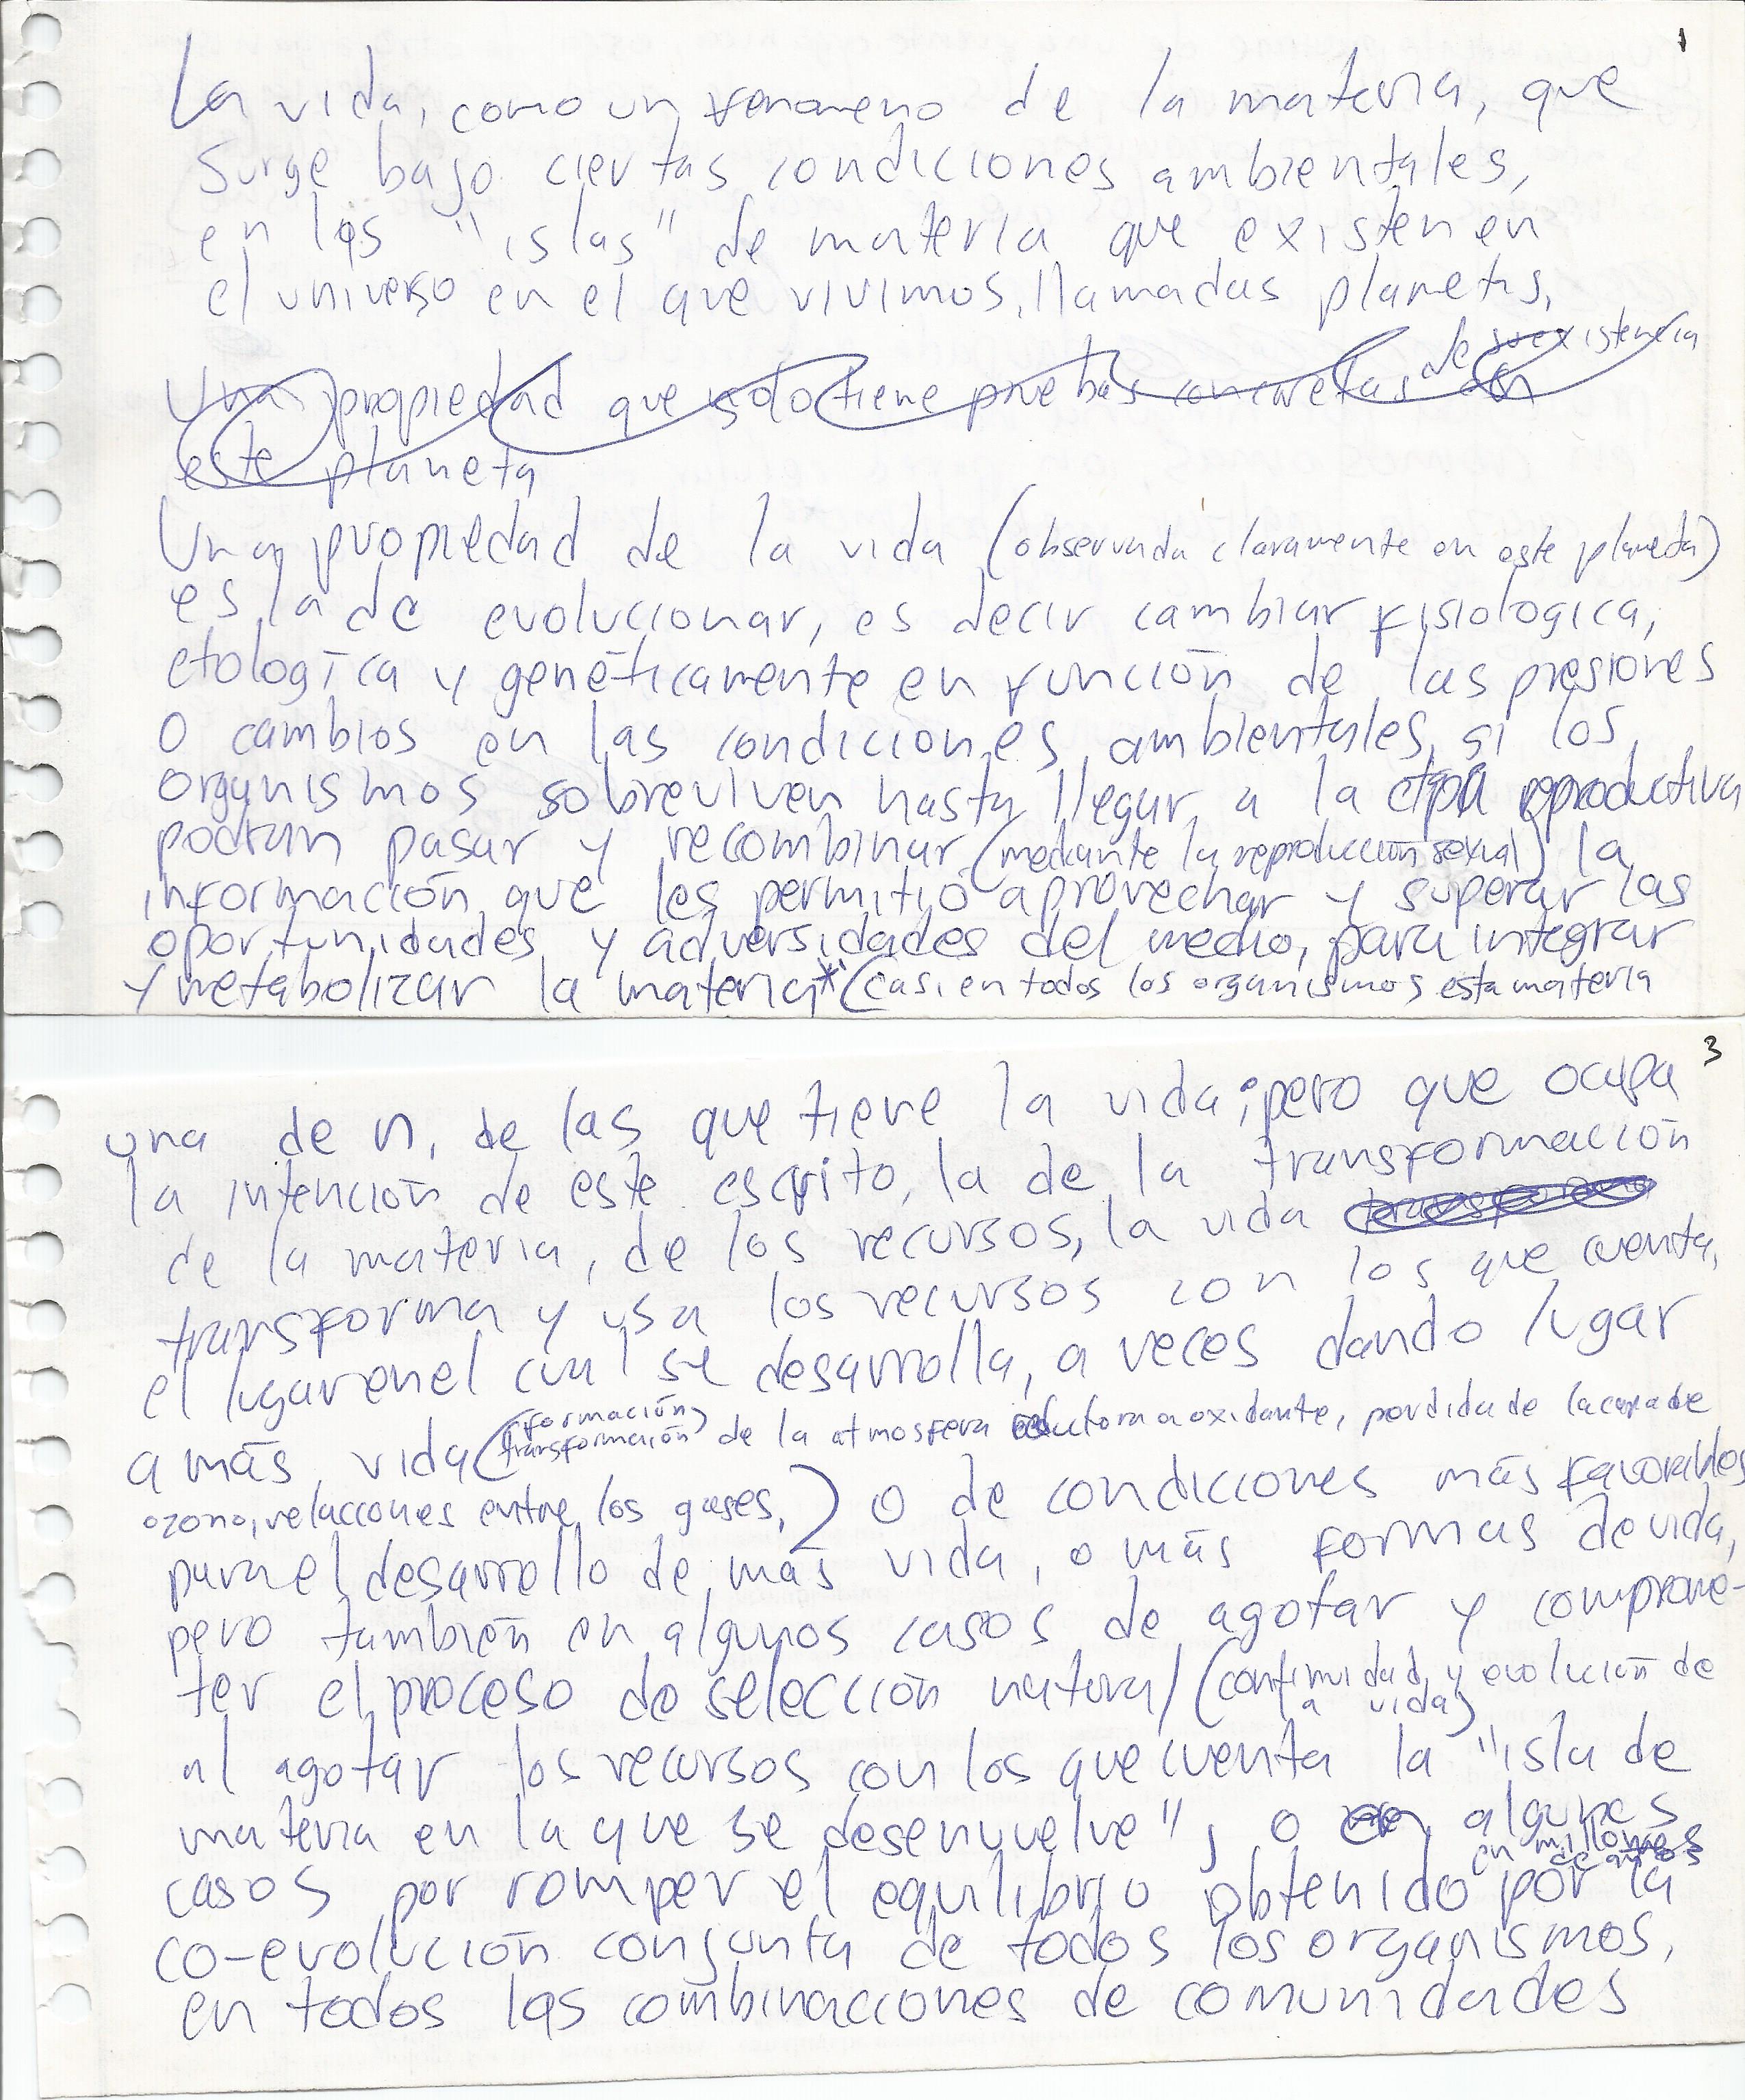 1
La vida, como un fenomeno de la materia, que
surge bajo ciertas condiciones ambientales,
en las "islas" de materia que existen en
el universo en el que vivimos, llamadas planetas,
de su existencia
Una propiedad que solo tiene pruebas concretas en
este planeta
Una propiedad de la vida (observada claramente en este planeta)
es la de evolucionar, es decir cambiar fisiologica,
etologíca y genéticamente en función de las presiones
o cambios en las condiciones ambientales, si los
organismos sobreviven hasta llegar a la etapa reproductiva
podran pasar y recombinar (mediante la reproducción sexual) la
información que les permitió aprovechar y superar las
oportunidades y adversidades del medio, para integrar
y metabolizar la materia* (casi en todos los organismos esta materia
3
una de n, de las que tiene la vida; pero que ocupa
la intención de este escrito, la de la transformación
de la materia, de los recursos, la vida
transforma y usa los recursos con los que cuenta,
el lugar en el cual se desarrolla, a veces dando lugar
a más vida (formación) transformación de la atmosfera reductora a oxidante, perdida de la capa de
ozono, relacciones entre los gases,) o de condiciones más favorables
para el desarrollo de más vida, o más formas de vida,
pero también en algunos casos de agotar y comprome-
ter el proceso de selección natural (continuidad y evolución de
la vida)
al agotar los recursos con los que cuenta la "isla de
materia en la que se desenvuelve", o en algunos
en millones de años
casos por romper el equilibrio obtenido por la
co-evolución conjunta de todos los organismos,
en todos las combinacciones de comunidades